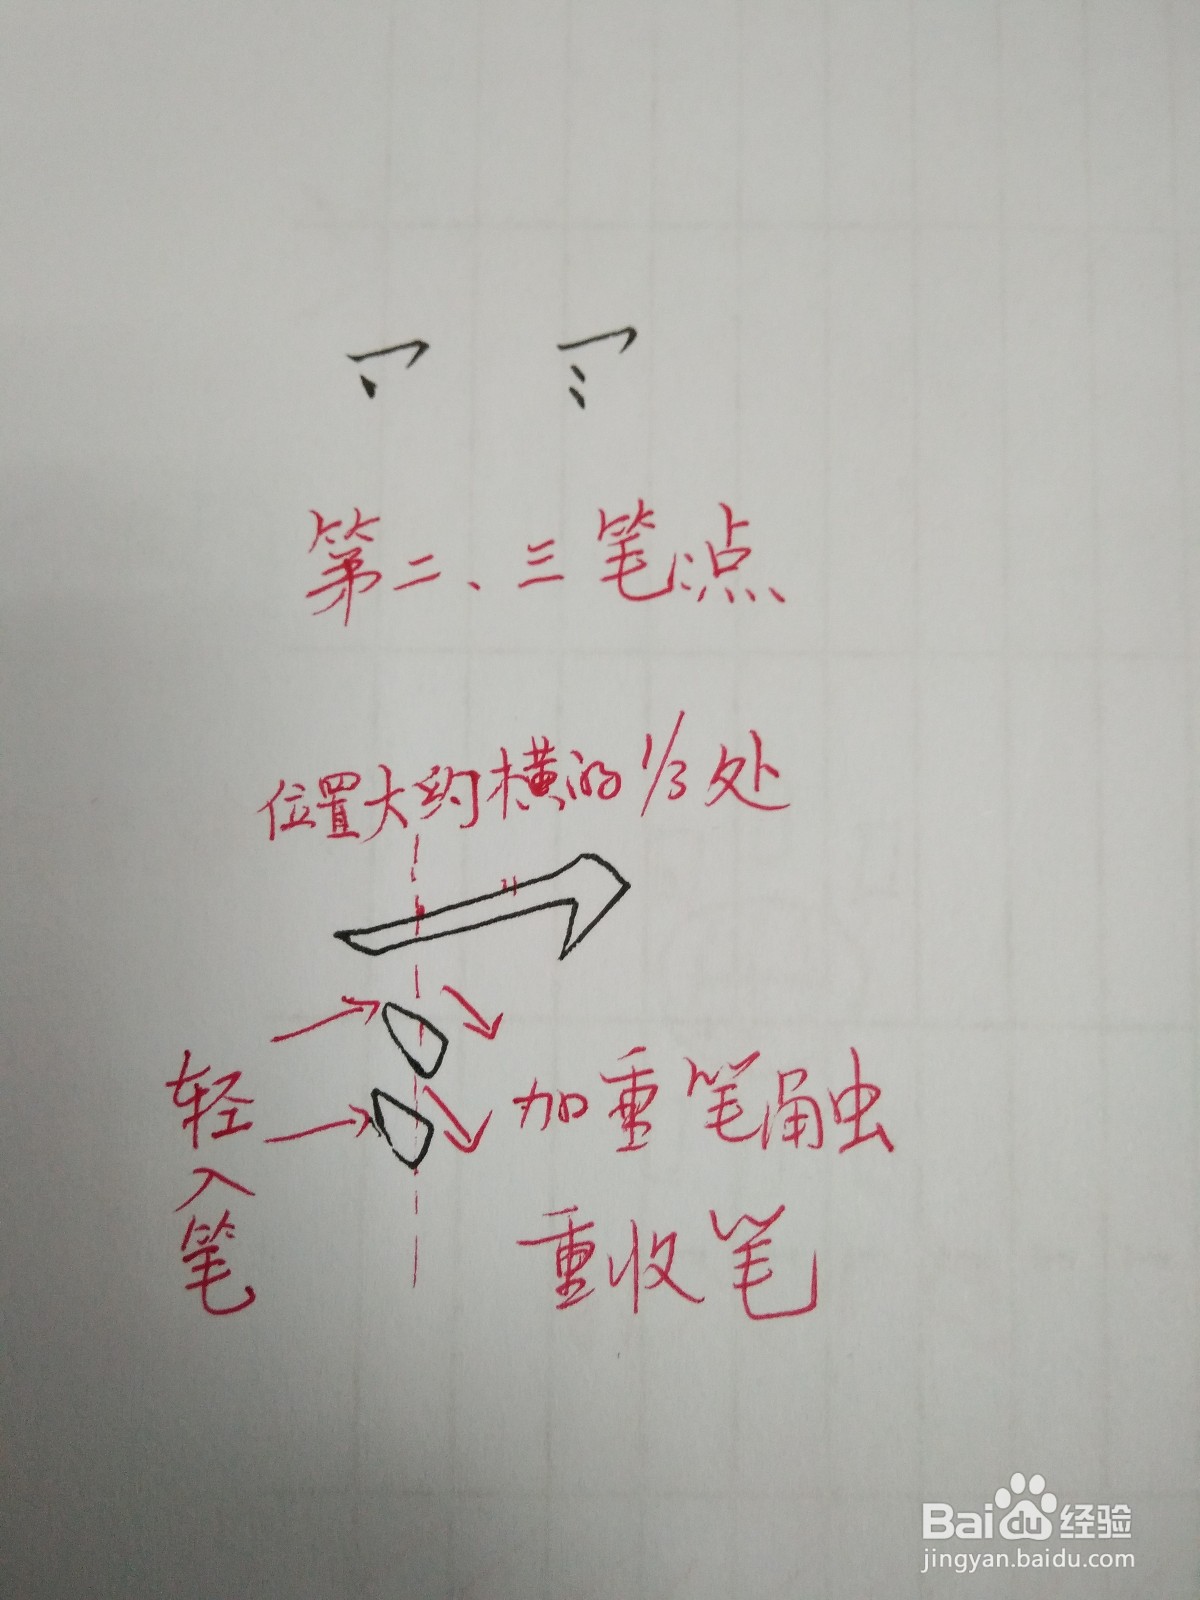 第二、三笔点
位置大约横的1/3处
轻入笔
加重笔触
重收笔
Baidu经验
jingyan.baidu.com